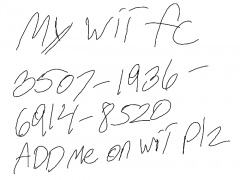 My wii fc
3507-1936-
6914-8520
ADD me on wii Plz